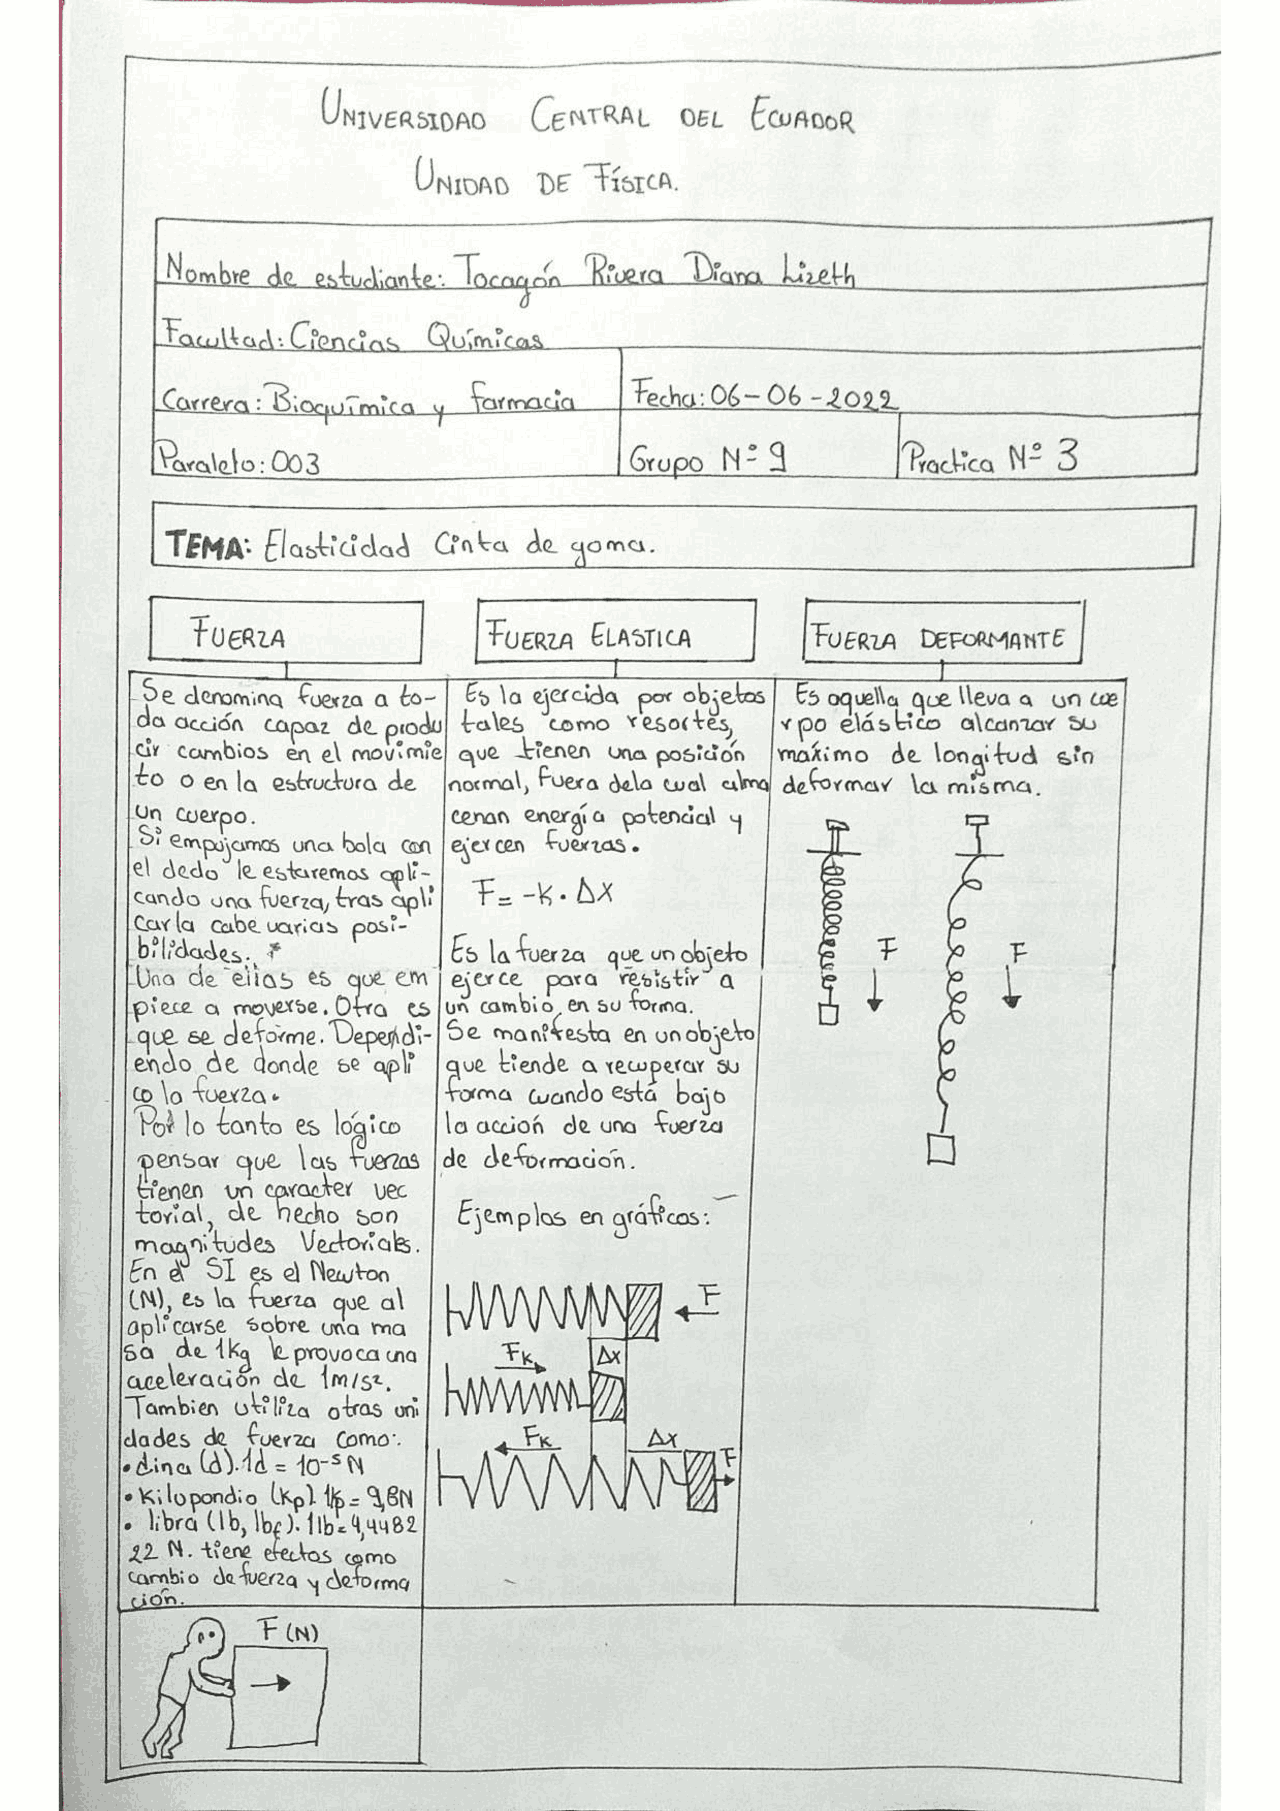 UNIVERSIDAD CENTRAL DEL ECUADOR
UNIDAD DE FÍSICA.
Nombre de estudiante: Tocagón Rivera Diana Lizeth
Facultad: Ciencias Químicas
Carrera: Bioquímica y farmacia
Fecha: 06-06-2022
Paralelo: 003
Grupo Nº 9
Practica Nº 3
TEMA: Elasticidad Cinta de goma.
FUERZA
Se denomina fuerza a to-
da acción capaz de produ
cir cambios en el movimie
to o en la estructura de
un cuerpo.
Si empujamos una bola con
el dedo le estaremos apli-
cando una fuerza, tras apli
carla cabe varias posi-
bilidades.
Una de ellas es que em
piece a moverse. Otra es
que se deforme. Dependi-
endo de donde se apli
co la fuerza.
Por lo tanto es lógico
pensar que las fuerzas
tienen un caracter vec
torial, de hecho son
magnitudes Vectoriales.
En el SI es el Newton
(N), es la fuerza que al
aplicarse sobre una ma
sa de 1Kg le provoca una
aceleración de 1m/s².
Tambien utiliza otras uni
dades de fuerza como:
• dina (d). 1d = 10⁻⁵N
• Kilopondio (Kp). 1Kp = 9,8N
• libra (lb, lbf). 1lb = 4,4482
22 N. tiene efectos como
cambio de fuerza y deforma
ción.
F (N)
FUERZA ELASTICA
Es la ejercida por objetos
tales como resortes,
que tienen una posición
normal, fuera dela cual alma
cenan energía potencial y
ejercen fuerzas.
F = -K · Δx
Es la fuerza que un objeto
ejerce para resistir a
un cambio en su forma.
Se manifesta en un objeto
que tiende a recuperar su
forma cuando está bajo
la acción de una fuerza
de deformación.
Ejemplos en gráficos:
F
FK
Δx
FK
Δx
F
FUERZA DEFORMANTE
Es aquella que lleva a un cue
rpo elástico alcanzar su
máximo de longitud sin
deformar la misma.
F
F